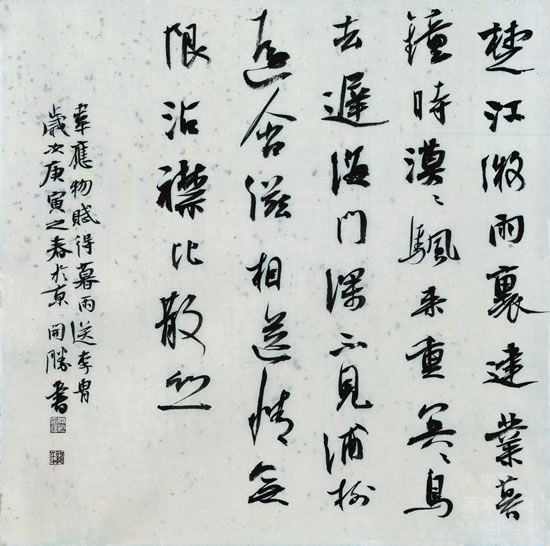 楚江微雨裏建業暮
鐘時漠漠颿来重冥冥鳥
去遲海門深不見浦樹
遠含滋相送情無
限沾襟比散絲
韋應物賦得暮雨送李胄
歲次庚寅之春於京開勝書